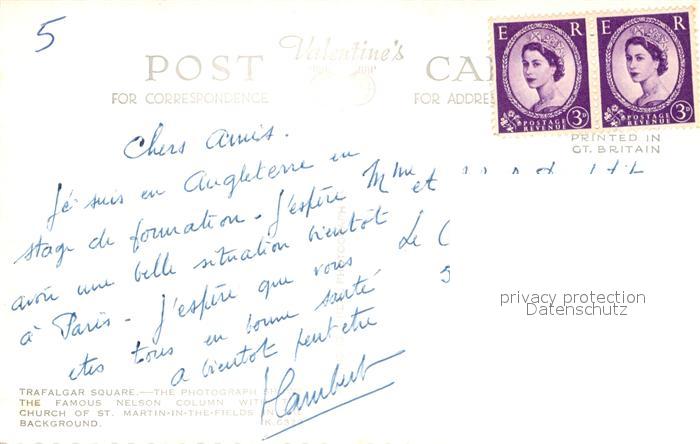 5
POST
Valentine's
FOR CORRESPONDENCE
FOR ADDRE
E R
3D
POSTAGE
REVENUE
E R
3D
POSTAGE
REVENUE
PRINTED IN
GT. BRITAIN
Chers Amis.
Je suis en Angleterre en
stage de formation - J'espère
avoir une belle situation bientôt
à Paris - J'espère que vous
etes tous en bonne santé
a bientot peut etre
Lambert
Mme et
Le
privacy protection
Datenschutz
TRAFALGAR SQUARE.—THE PHOTOGRAPH
THE FAMOUS NELSON COLUMN WITH
CHURCH OF ST. MARTIN-IN-THE-FIELDS IN
BACKGROUND.